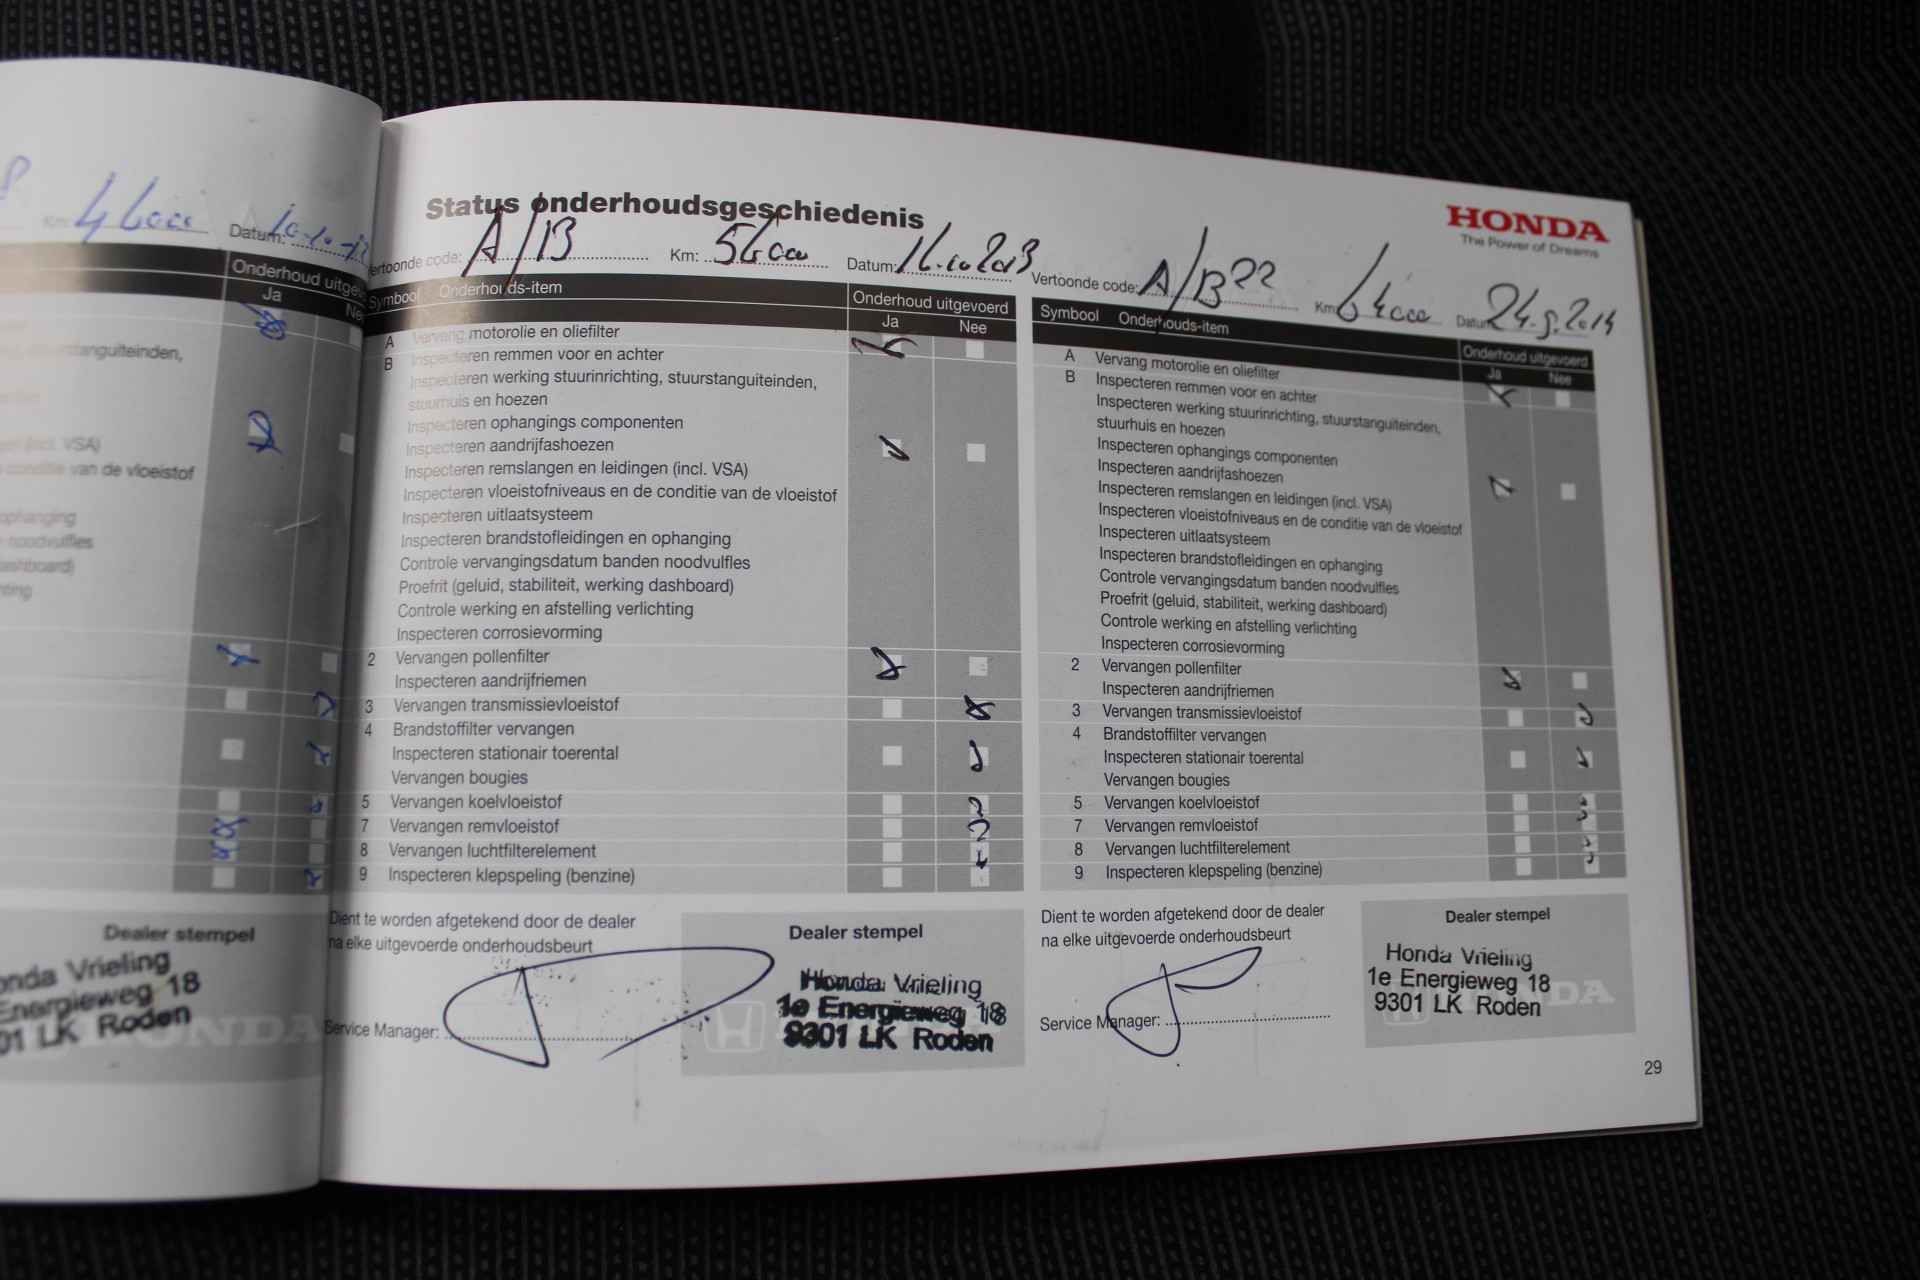 Km: 44000 Datum:
Onderhoud uitgevoerd
Ja
(incl. VSA)
conditie van de vloeistof
ophanging
noodvulfles
dashboard)
Dealer stempel
Honda Vrieling
Energieweg 18
9301 LK Roden
HONDA
Status onderhoudsgeschiedenis
Vertoonde code: A/B Km: 54000 Datum: 16.10 2013
Symbool Onderhouds-item
Onderhoud uitgevoerd
Ja Nee
A Vervang motorolie en oliefilter
B Inspecteren remmen voor en achter
Inspecteren werking stuurinrichting, stuurstanguiteinden,
stuurhuis en hoezen
Inspecteren ophangings componenten
Inspecteren aandrijfashoezen
Inspecteren remslangen en leidingen (incl. VSA)
Inspecteren vloeistofniveaus en de conditie van de vloeistof
Inspecteren uitlaatsysteem
Inspecteren brandstofleidingen en ophanging
Controle vervangingsdatum banden noodvulfles
Proefrit (geluid, stabiliteit, werking dashboard)
Controle werking en afstelling verlichting
Inspecteren corrosievorming
2 Vervangen pollenfilter
Inspecteren aandrijfriemen
3 Vervangen transmissievloeistof
4 Brandstoffilter vervangen
Inspecteren stationair toerental
Vervangen bougies
5 Vervangen koelvloeistof
7 Vervangen remvloeistof
8 Vervangen luchtfilterelement
9 Inspecteren klepspeling (benzine)
Dient te worden afgetekend door de dealer
na elke uitgevoerde onderhoudsbeurt
Service Manager:
Dealer stempel
Honda Vrieling
1e Energieweg 18
9301 LK Roden
HONDA
The Power of Dreams
Vertoonde code: A/B 22 Km: 64000 Datum: 24.9.2014
Symbool Onderhouds-item
Onderhoud uitgevoerd
Ja Nee
A Vervang motorolie en oliefilter
B Inspecteren remmen voor en achter
Inspecteren werking stuurinrichting, stuurstanguiteinden,
stuurhuis en hoezen
Inspecteren ophangings componenten
Inspecteren aandrijfashoezen
Inspecteren remslangen en leidingen (incl. VSA)
Inspecteren vloeistofniveaus en de conditie van de vloeistof
Inspecteren uitlaatsysteem
Inspecteren brandstofleidingen en ophanging
Controle vervangingsdatum banden noodvulfles
Proefrit (geluid, stabiliteit, werking dashboard)
Controle werking en afstelling verlichting
Inspecteren corrosievorming
2 Vervangen pollenfilter
Inspecteren aandrijfriemen
3 Vervangen transmissievloeistof
4 Brandstoffilter vervangen
Inspecteren stationair toerental
Vervangen bougies
5 Vervangen koelvloeistof
7 Vervangen remvloeistof
8 Vervangen luchtfilterelement
9 Inspecteren klepspeling (benzine)
Dient te worden afgetekend door de dealer
na elke uitgevoerde onderhoudsbeurt
Service Manager:
Dealer stempel
Honda Vrieling
1e Energieweg 18
9301 LK Roden
29